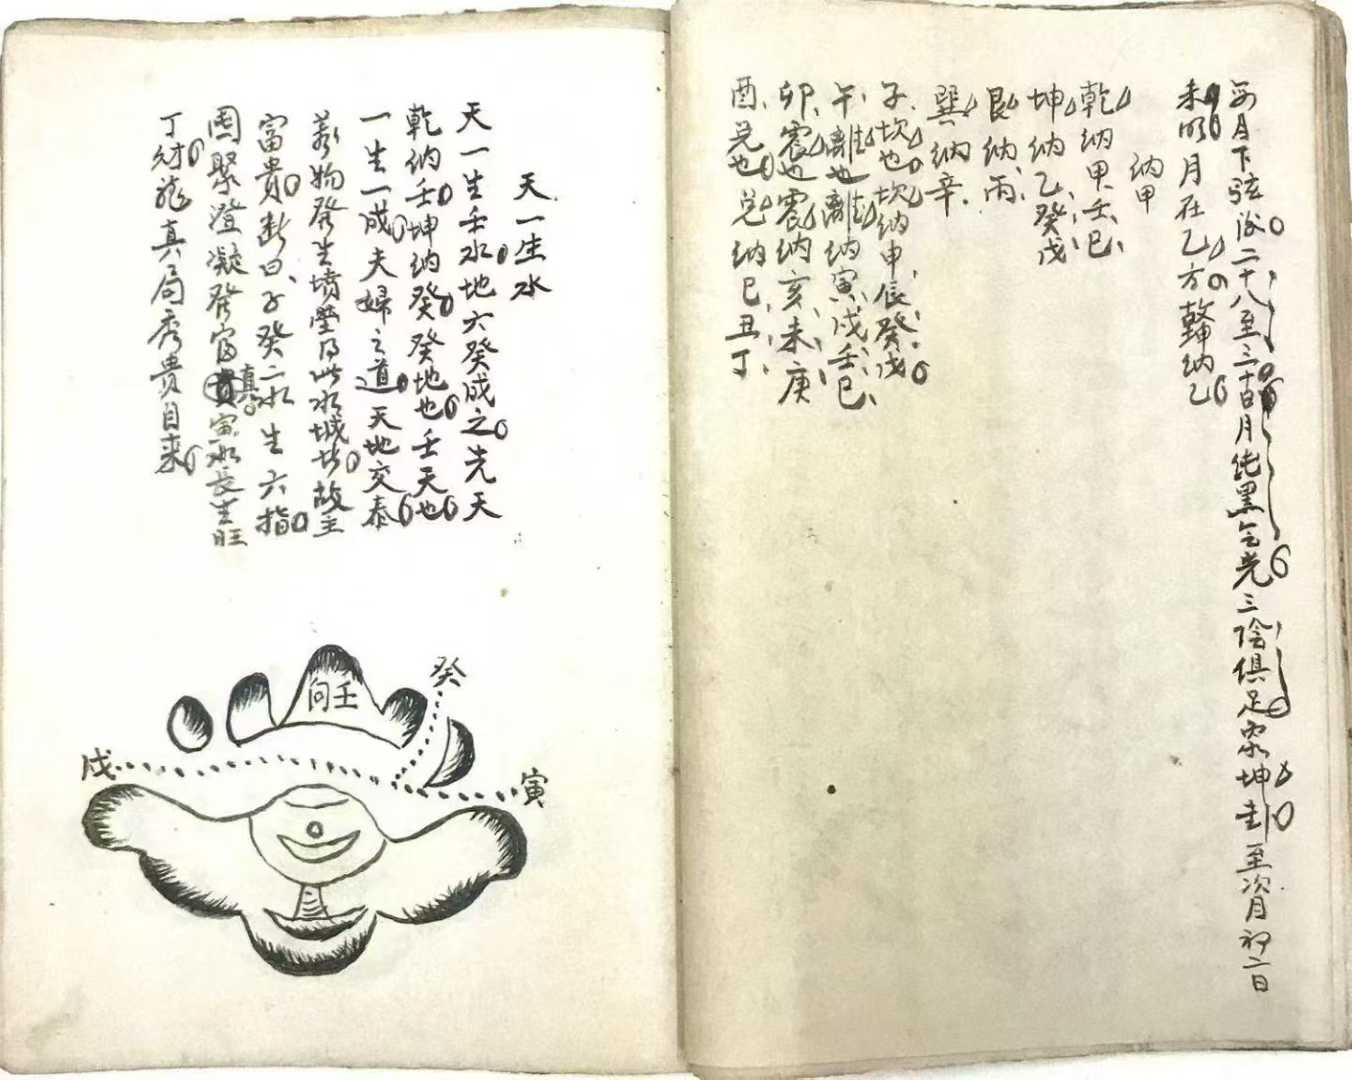 每月下弦後二十八至三十日月純黑無光三陰俱足象坤卦至次月初二日
未明月在乙方故坤納乙
納甲
乾納甲壬巳
坤納乙癸戊
艮納丙
巽納辛
子坎也坎納申辰癸戊
午離也離納寅戌壬巳
卯震也震納亥未庚
酉兑也兑納巳丑丁
天一生水
天一生壬水地六癸成之先天
乾納壬坤納癸癸地也壬天也
一生一成夫婦之道天地交泰
萬物發生墳塋得此水城者故主
富貴断曰子癸二水生六指
團聚澄凝發富真寅水長生旺
丁財龍真局秀貴自来
向壬
癸
戌
寅